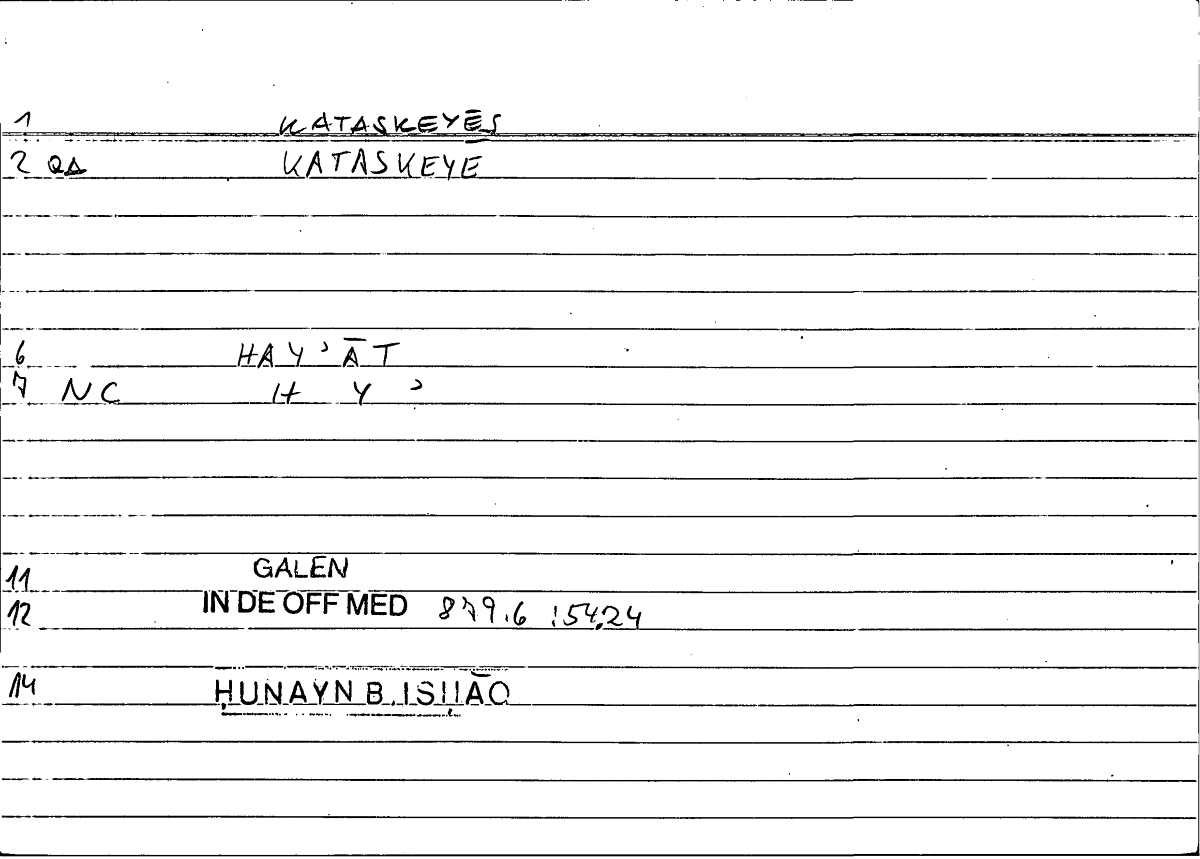 1 KATASKEYĒS
2 QΔ KATASKEYE
6 HAY ʾ ĀT
7 NC H Y ʾ
11 GALEN
12 IN DE OFF MED 879.6 :54,24
14 ḤUNAYN B. ISḤĀQ